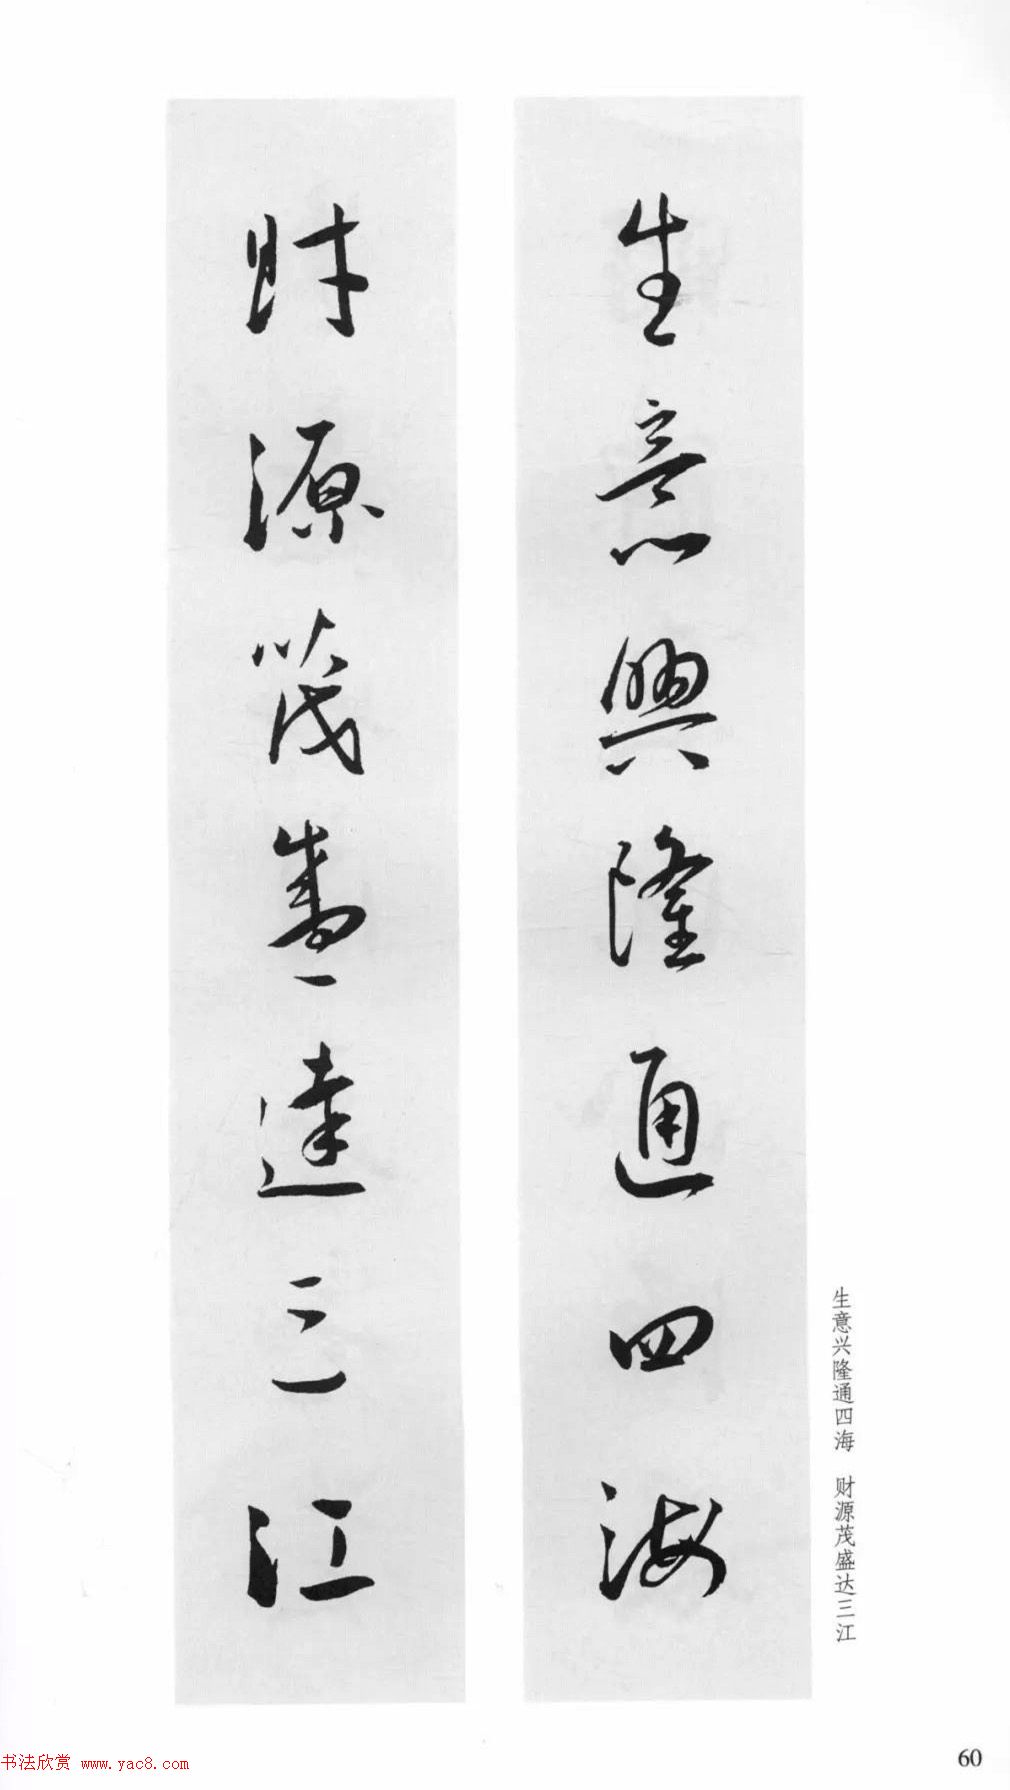 生意興隆通四海
財源茂盛達三江
生意兴隆通四海 财源茂盛达三江
书法欣赏 www.yac8.com
60